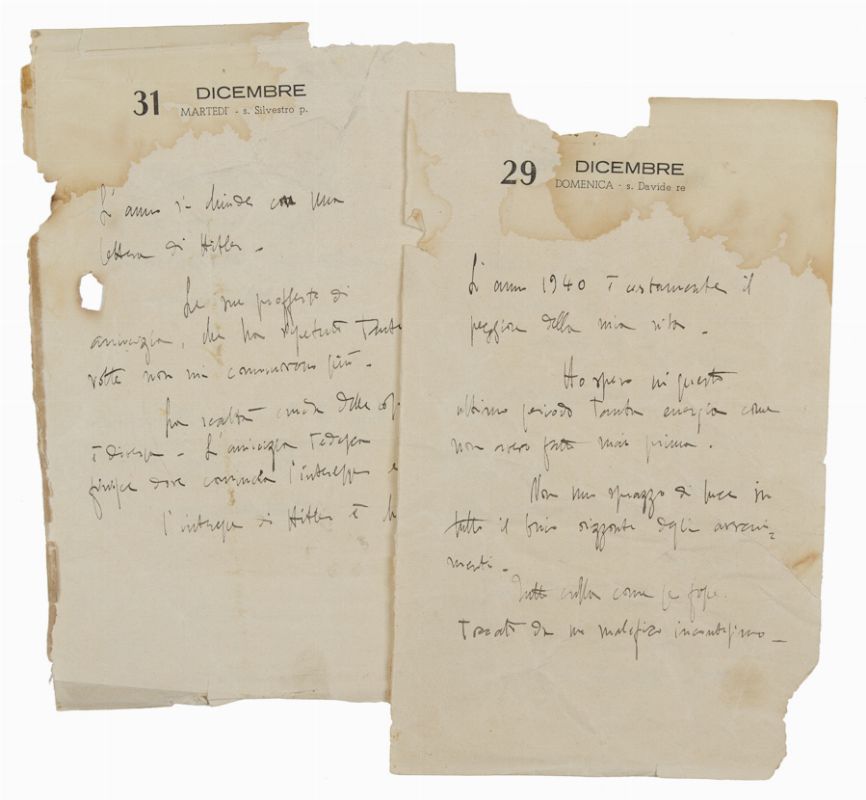 31 DICEMBRE
MARTEDÌ - s. Silvestro p.
L'anno si chiude con una
lettera di Hitler -
Le sue profferte di
amicizia, che ha ripetuto tante
volte non mi commuovono più -
La realtà cruda delle
è diversa - L'amicizia tedesca
finisce dove comincia l'interesse
l'interesse di Hitler è
29 DICEMBRE
DOMENICA - s. Davide re
L'anno 1940 è certamente il
peggiore della mia vita -
Ho speso in questo
ultimo periodo tanta energia come
non avevo fatto mai prima.
Non uno sprazzo di luce in
tutto il orizzonte degli avveni=
menti -
Tutto crolla come se fosse
toccato da un malefico incantesimo -